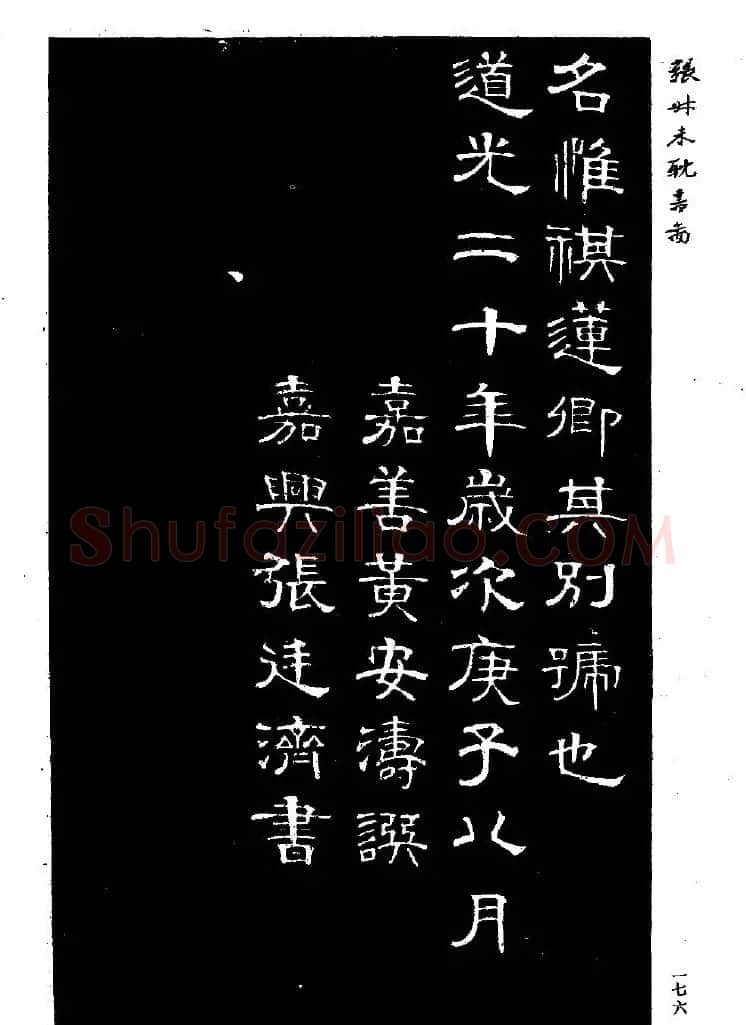 張叔未耽嘉
名惟祺蓮卿其別號也
道光二十年歲次庚子八月
嘉善黃安濤譔
嘉興張廷濟書
一七六
Shufaziliao.COM